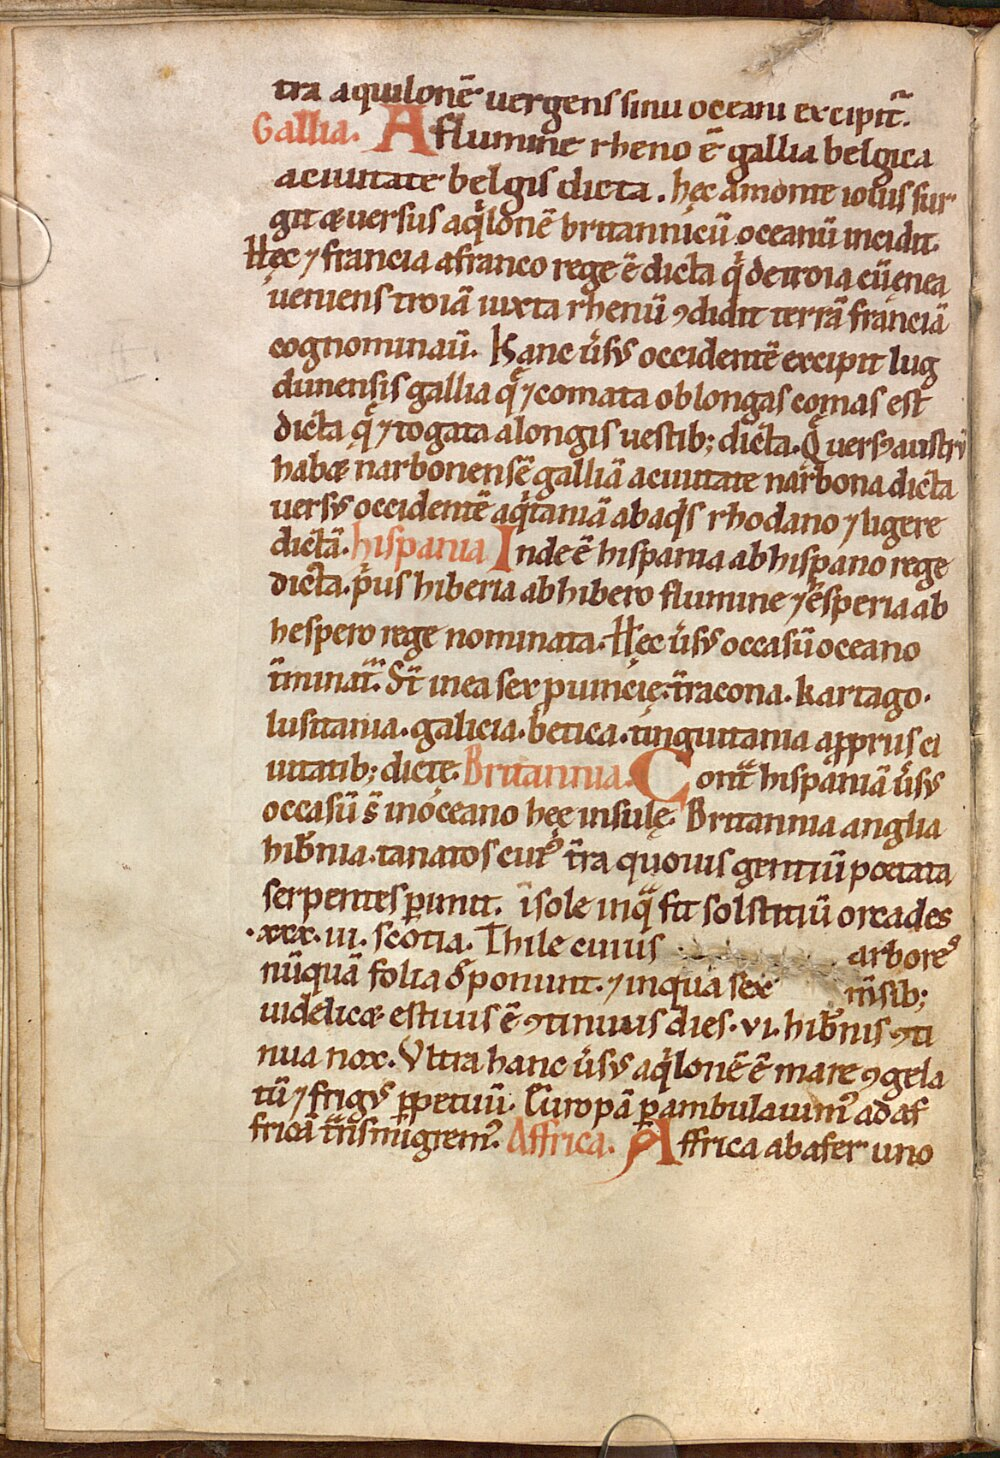 tra aquilonē uergens sinu oceani excipit᷑.
Gallia. A flumine rheno ē gallia belgica
a ciuitate belgis dicta. hęc a monte iouis sur
git & uersus aq̇lonē britannicū oceanū incidit.
Hęc ⁊ francia a franco rege ē dicta q̇ de troia cū enea
ueniens troiā iuxta rhenū ꝯdidit terrā franciā
cognominaū. Hanc ūsꝰ occidentē excipit lug
dunensis gallia q̄ ⁊ comata ob longas comas est
dicta q̄ ⁊ togata a longis uestib; dicta. Q̄ uersꝰ austrū
hab& narbonensē galliā a ciuitate narbona dicta
uersꝰ occidentē aq̇taniā ab aq̇s rhodano ⁊ ligere
dictā. hispania Inde ē hispania ab hispano rege
dicta. pⁱus hiberia ab hibero flumine ⁊ ēsperia ab
hespero rege nominata. Hęc ūsꝰ occasū oceano
t̄minat᷑. St̄ in ea sex ꝓuincię. t̄racona. kartago.
lusitania. galicia. betica. tinguitania a ꝓpriis ci
uitatib; dictę. Britannia. Cont̄ hispaniā ūsꝰ
occasū s̄ in oceano hęc insulę. Britannia anglia
hib̄nia. tanatos cuiꝰ t̄ra quouis gentiū portata
serpentes ꝑimit. īsole in q̄ fit solstitiū orcades
.xxx.iii. scotia. Thile cuius arbores
nūquā folia d̄ponunt. ⁊ in qua sex m̄sib;
uidelic& estiuis ē ꝯtinuus dies. vi. hib̄nis ꝯti
nua nox. Vltra hanc ūsꝰ aq̇lonē ē mare ꝯgela
tū ⁊ frigꝰ ꝑpetuū. Europā ꝑambulauimꝰ ad af
fricā t̄nsmigremꝰ. Affrica. Affrica ab afer uno